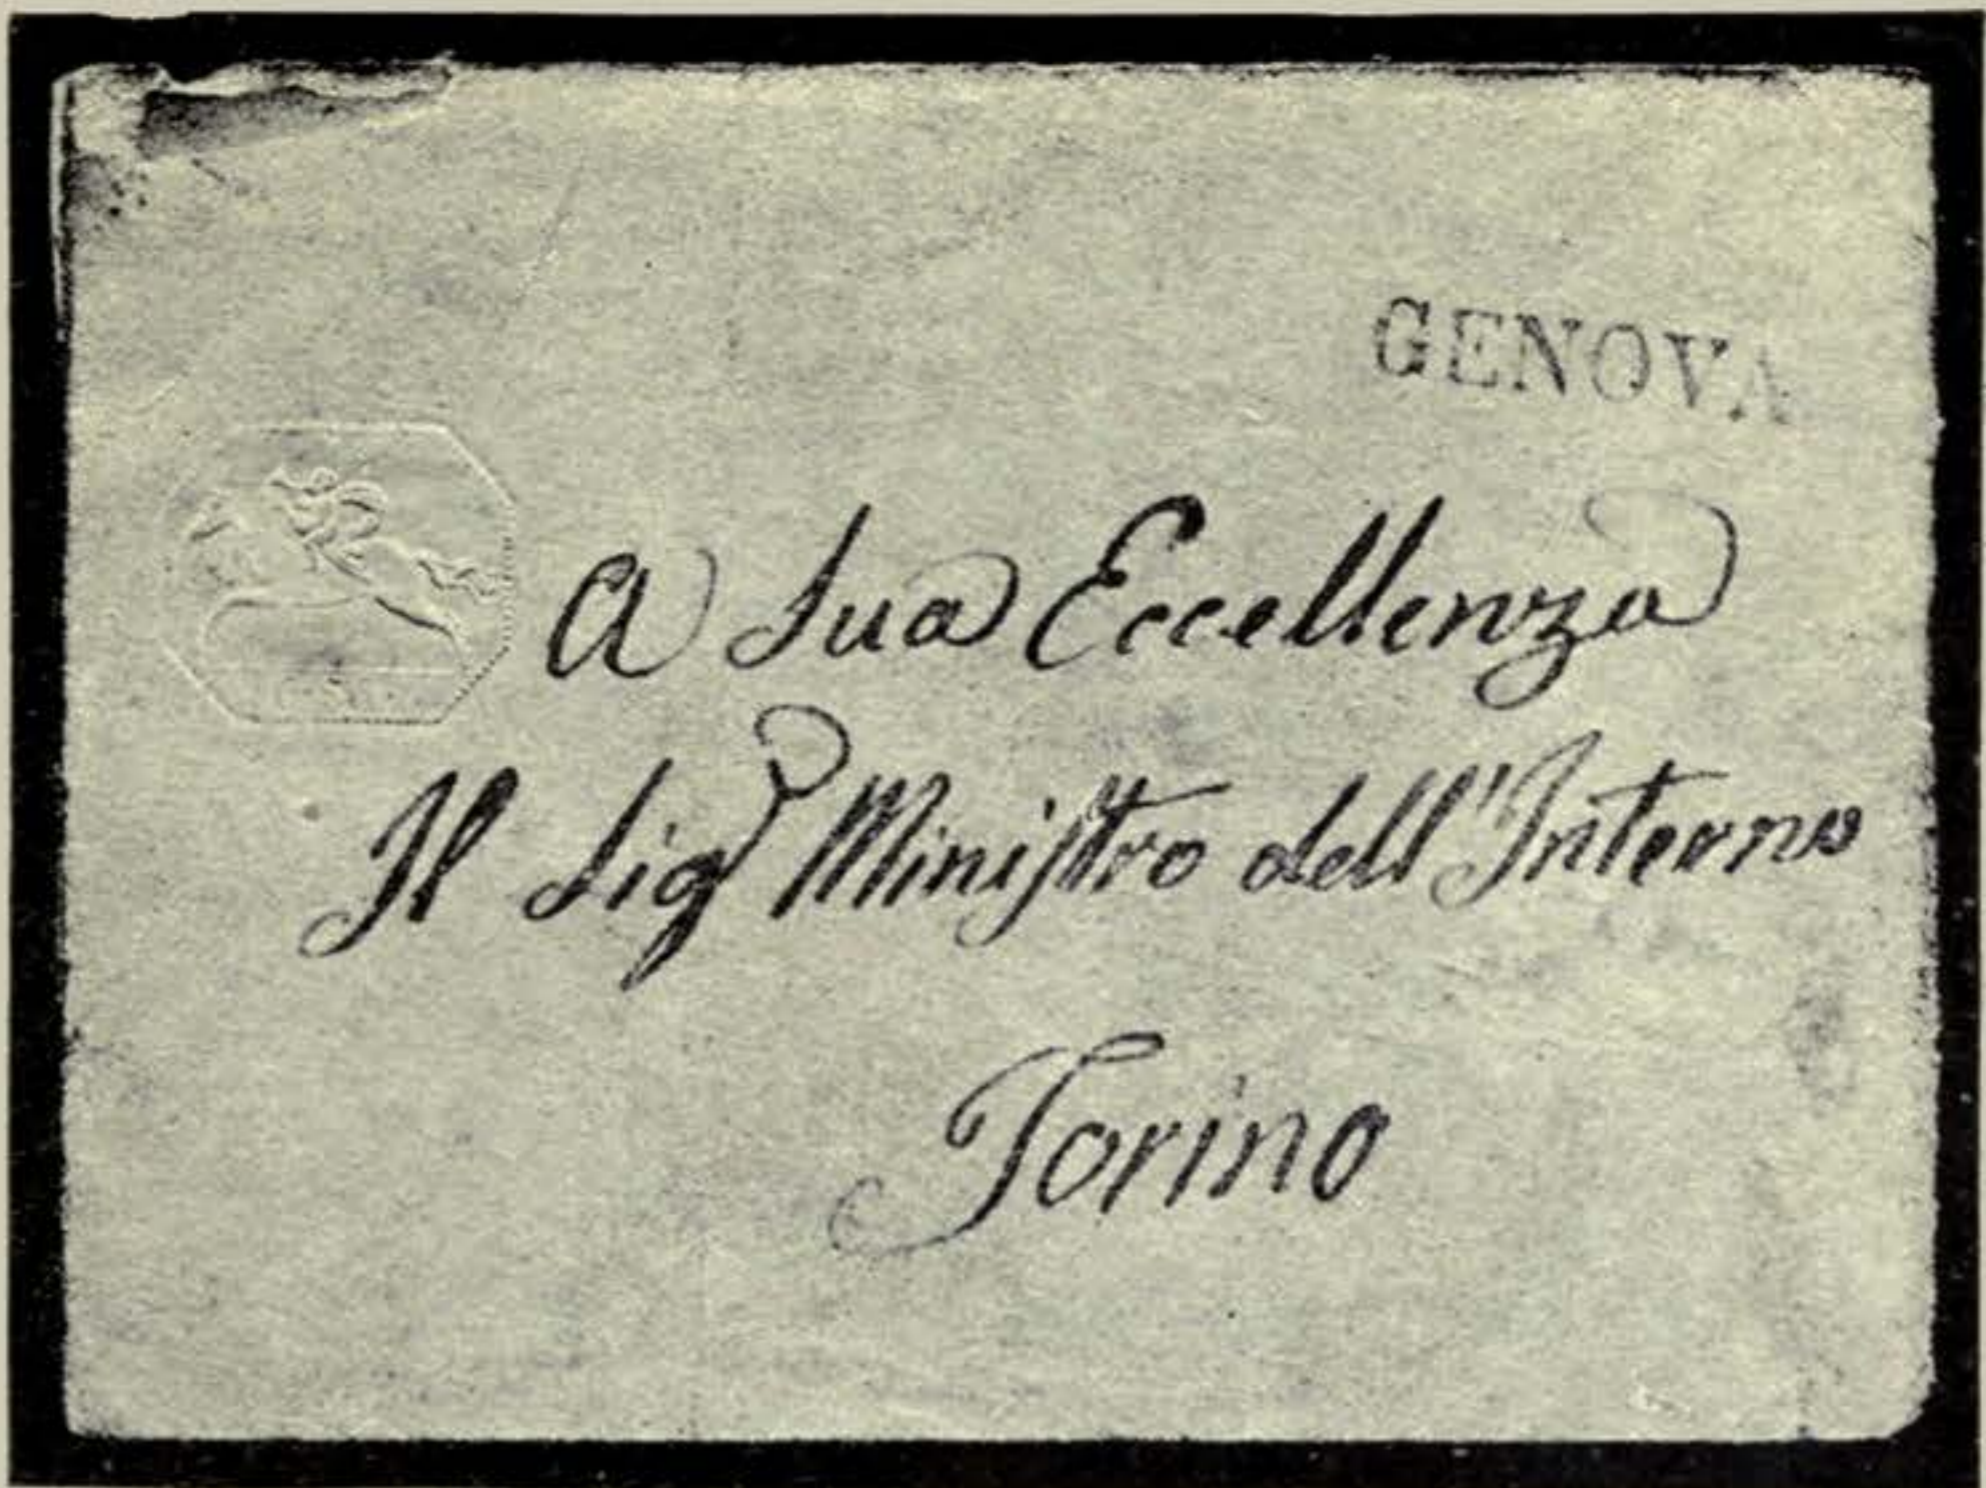 GENOVA
A Sua Eccellenza
Il Sig.r Ministro dell'Interno
Torino